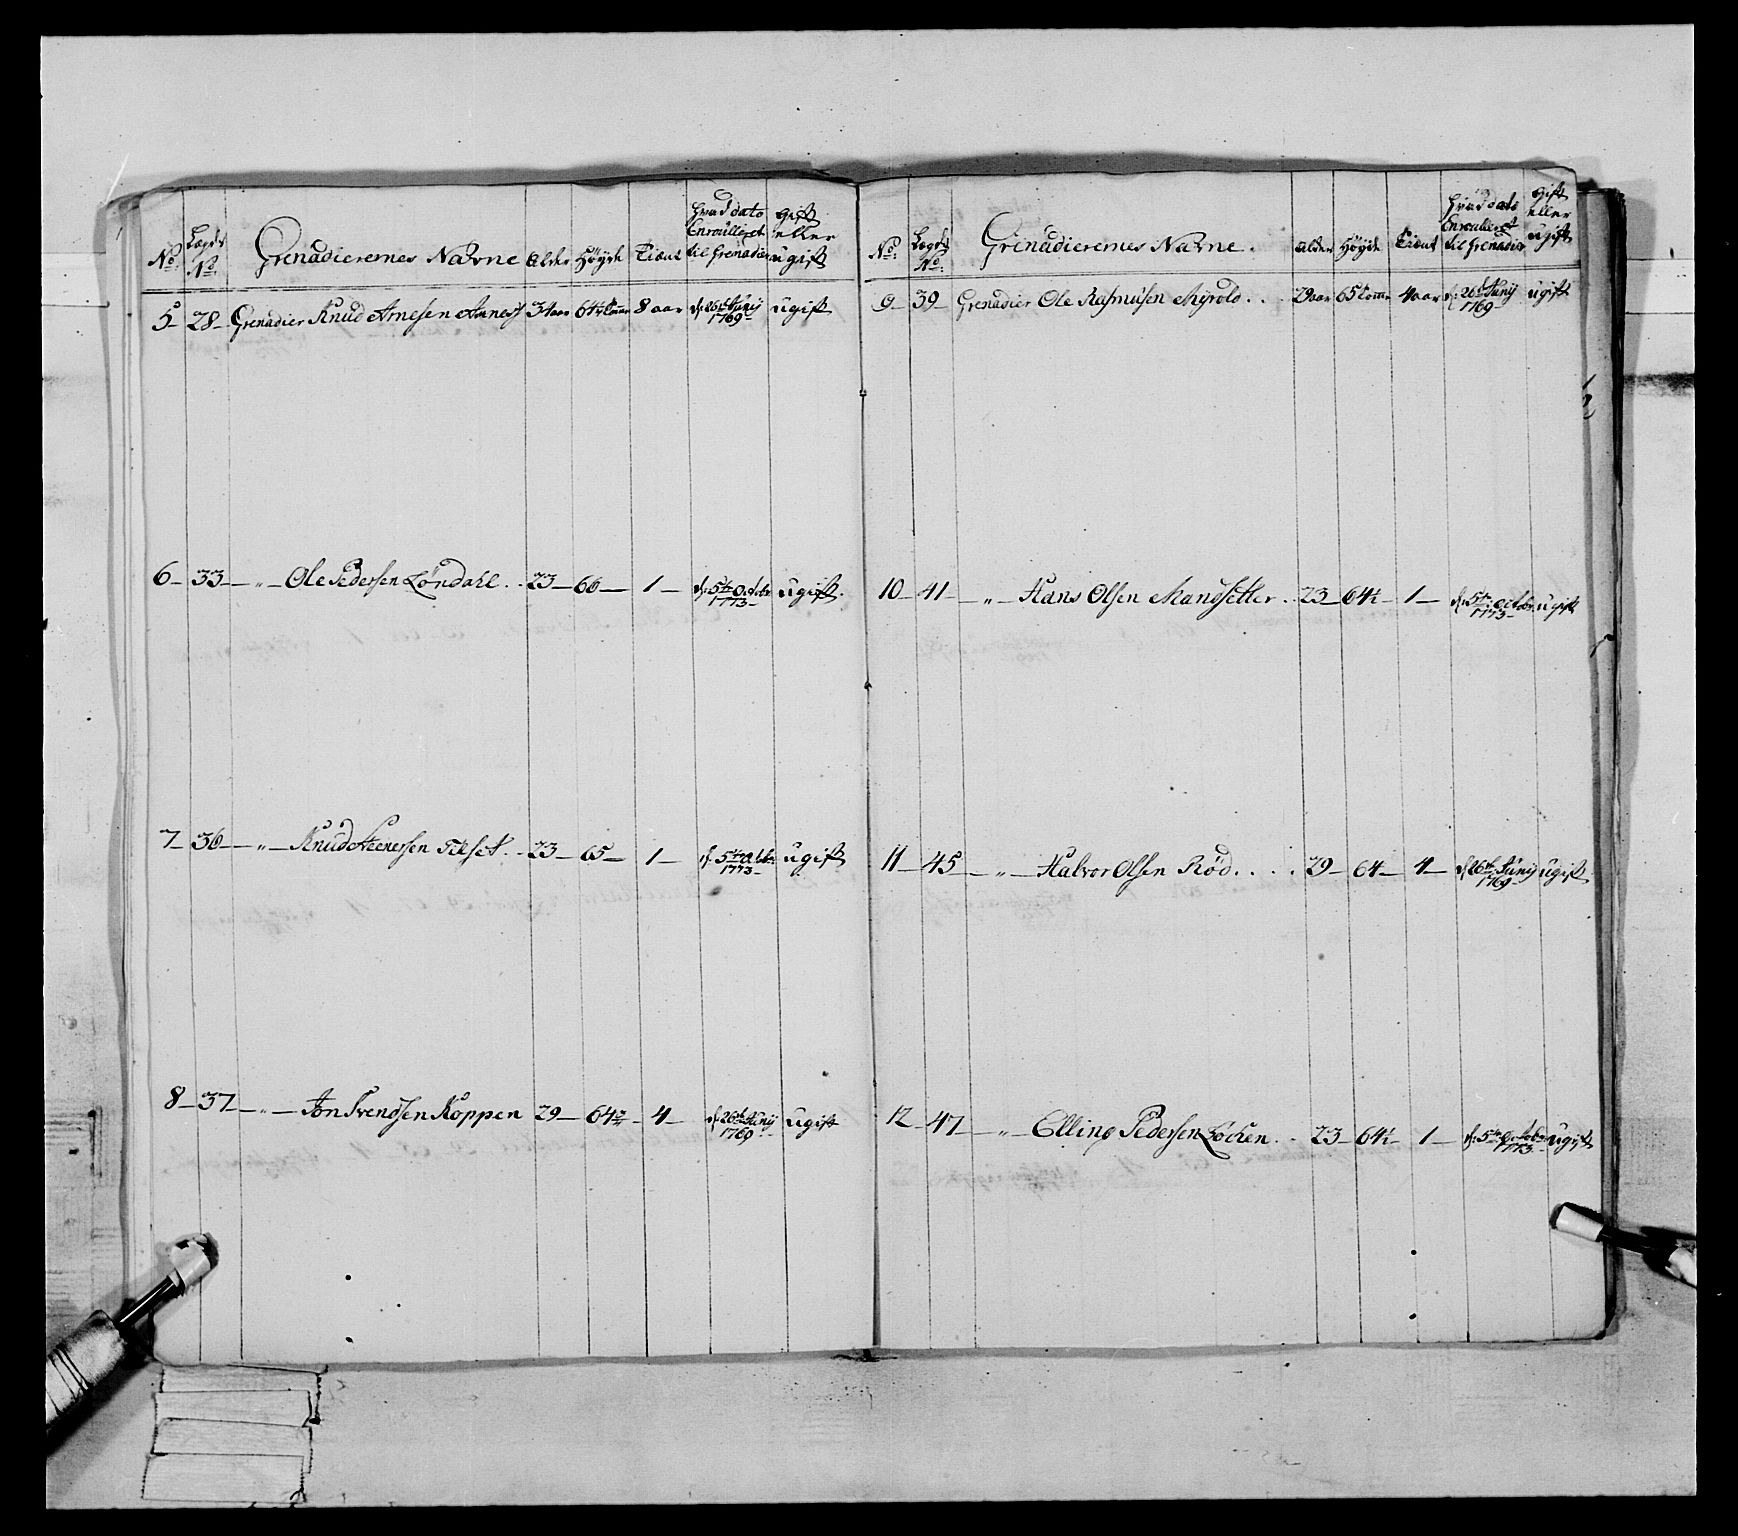 No: Lægds No: Grenadierernes Navne Alder Höyde Tient hvad dato Enroulleret til Grenadier gift eller ugift
5 28 Grenadier Knud Arnesen 34 aar 64½ tomme 8 aar d: 26de Junij 1769 ugift
6 33 „ Ole Pedersen Löndahl 23 66 1 d: 5te Octobr 1773 ugift
7 36 „ Knud Steenersen 23 65 1 d: 5te Octbr 1773 ugift
8 37 „ Jon Svendsen Koppen 29 64¾ 4 d: 26de Junij 1769 ugift
No: Lægds No: Grenadierernes Navne. Alder Höyde Tient hvad dato Enroulleret til Grenadier gift eller ugift
9 39 Grenadier Ole Rasmusen Myrold 29 aar 65 tomme 4 aar d: 26de Junij 1769 ugift
10 41 „ Hans Olsen Mandsetter 23 64½ 1 d: 5te Octobr 1773 ugift
11 45 „ Halvor Olsen Röd 29 64 4 d: 26de Junij 1769 ugift
12 47 „ Elling Pedersen Løchen 23 64½ 1 d: 5te Octobr 1773 ugift